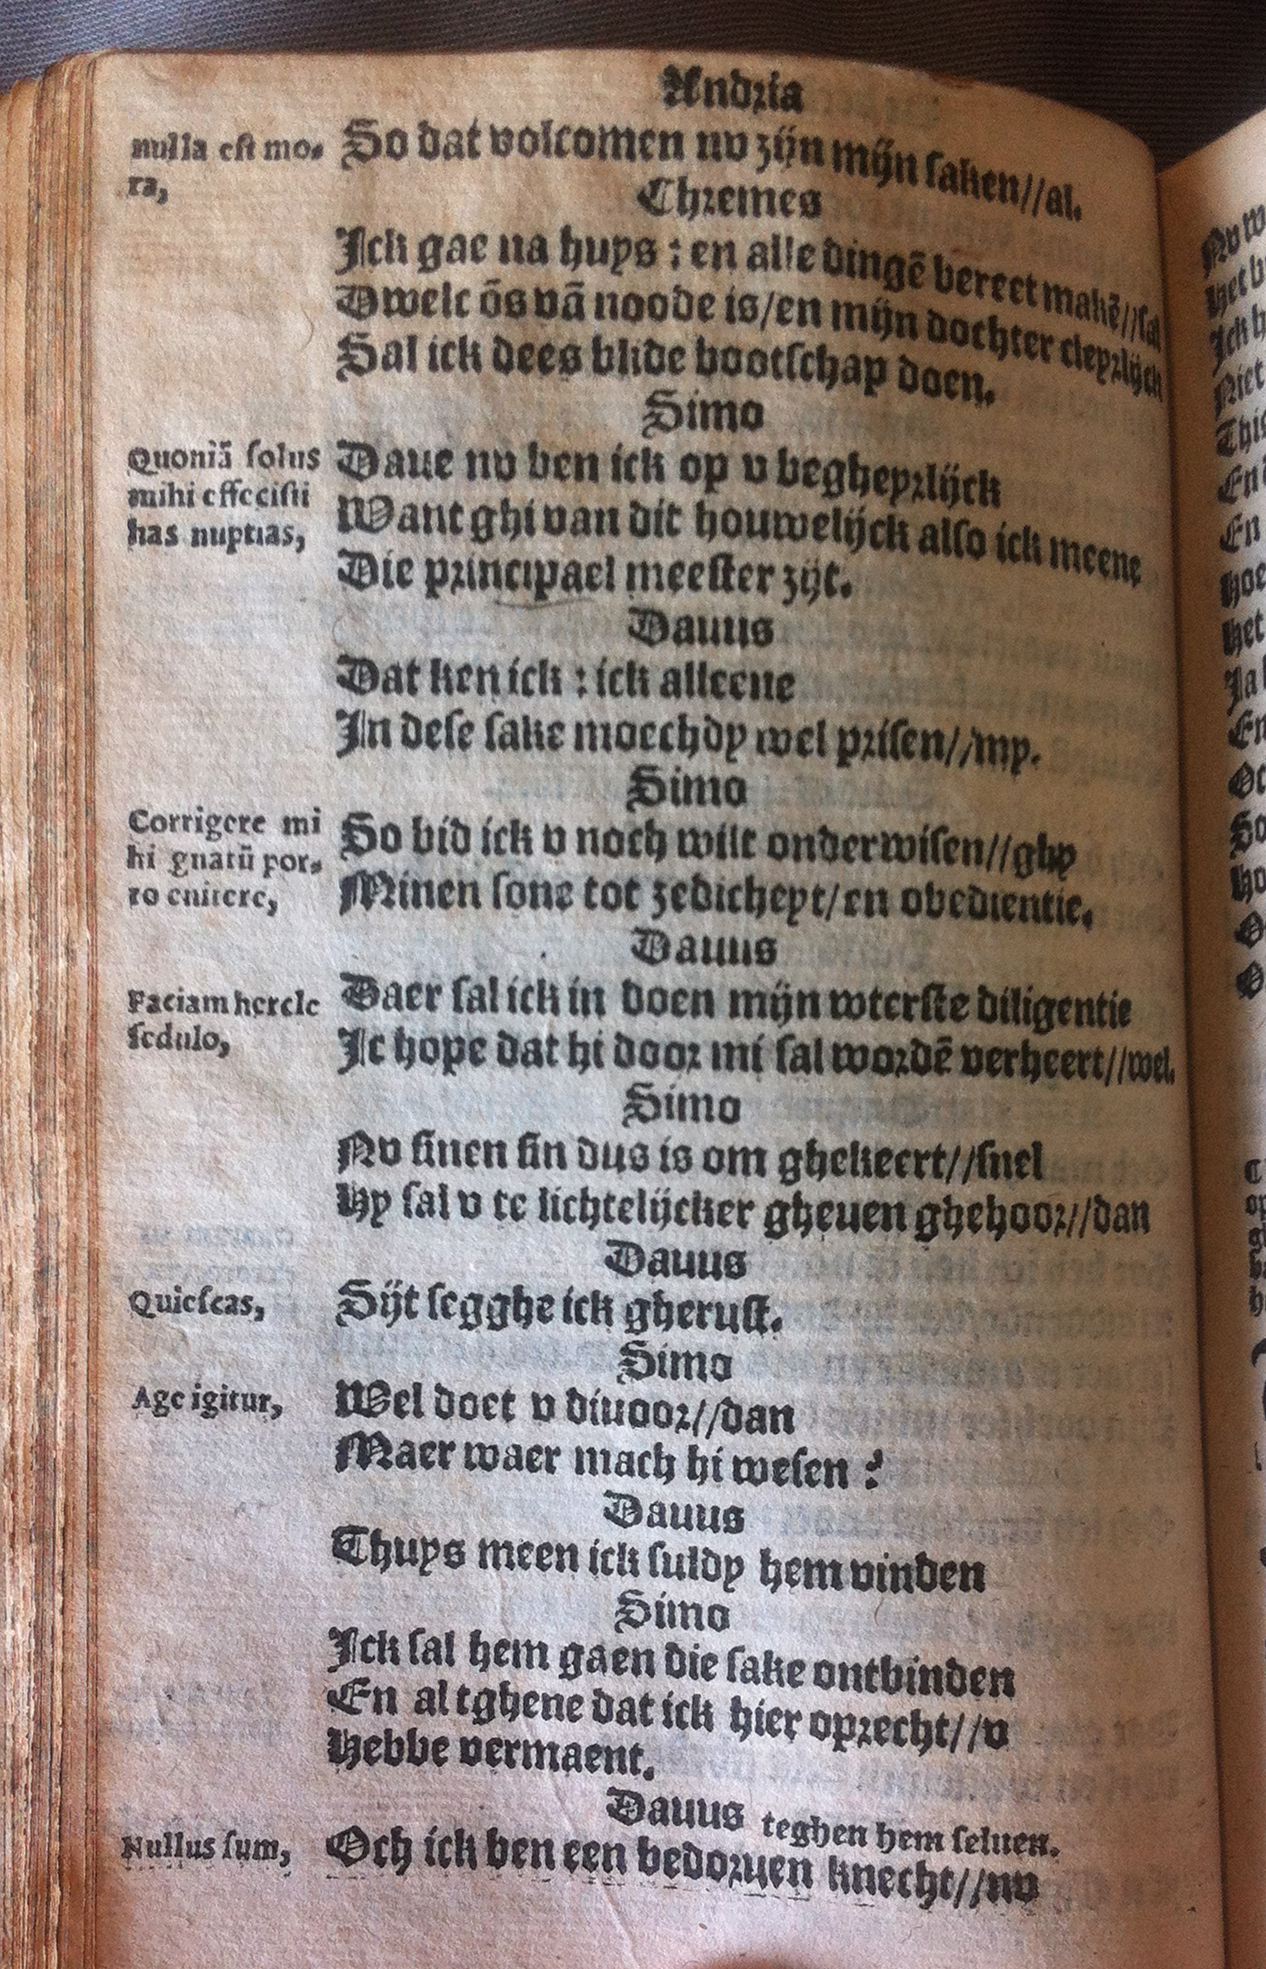 Andria
nulla est mo-
ra,
So dat volcomen nv zijn mijn saken//al.
Chremes
Ick gae na huys : en alle dingē bereet makē//sal
Dwelc ōs vā noode is/en mijn dochter cleyrlijck
Sal ick dees blide bootschap doen.
Simo
Quoniā solus
mihi effecisti
has nuptias,
Daue nv ben ick op v begheyrlijck
Want ghi van dit houwelijck also ick meene
Die principael meester zijt.
Dauus
Dat ken ick : ick alleene
In dese sake moechdy wel prisen//my.
Simo
Corrigere mi
hi gnatū por-
ro enitere,
So bid ick v noch wilt onderwisen//ghy
Minen sone tot zedicheyt/en obedientie.
Dauus
Faciam hercle
sedulo,
Daer sal ick in doen mijn wterste diligentie
Ic hope dat hi door mi sal wordē verheert//wel.
Simo
Nv sinen sin dus is om ghekeert//snel
Hy sal v te lichtelijcker gheuen ghehoor//dan
Dauus
Quiescas,
Sijt segghe ick gherust.
Simo
Age igitur,
Wel doet v diuoor//dan
Maer waer mach hi wesen ?
Dauus
Thuys meen ick suldy hem vinden
Simo
Ick sal hem gaen die sake ontbinden
En al tghene dat ick hier oprecht//v
Hebbe vermaent.
Dauus teghen hem seluen.
Nullus sum,
Och ick ben een bedoruen knecht//nv